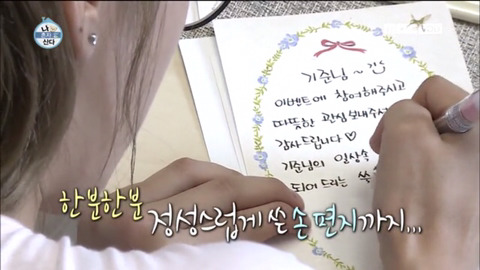 나
혼자
산다
기준님~
이벤트에 참여해주시고
따뜻한 관심보내주셔
감사드립니다♡
기준님의 일상속
되어드리는
한 분 한 분
정성스럽게 쓴 손 편지까지...